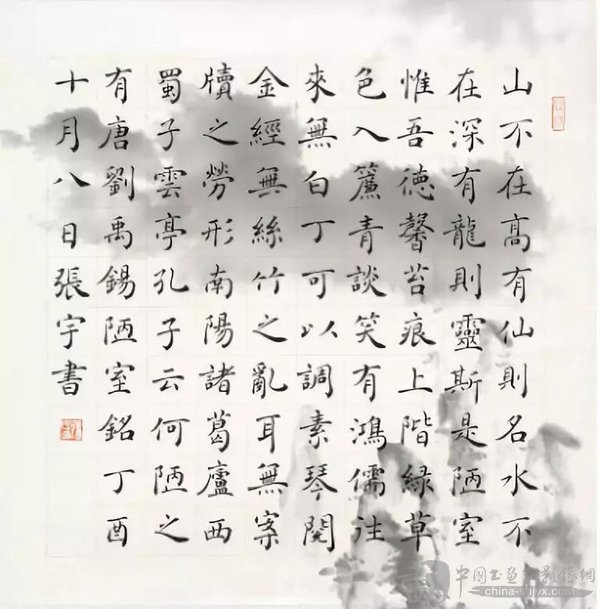 山不在髙有仙則名水不
在深有龍則靈斯是陋室
惟吾德馨苔痕上階緑草
色入簾青談笑有鴻儒往
來無白丁可以調素琴閱
金經無絲竹之亂耳無案
牘之勞形南陽諸葛廬西
蜀子雲亭孔子云何陋之
有唐劉禹錫陋室銘丁酉
十月八日張宇書